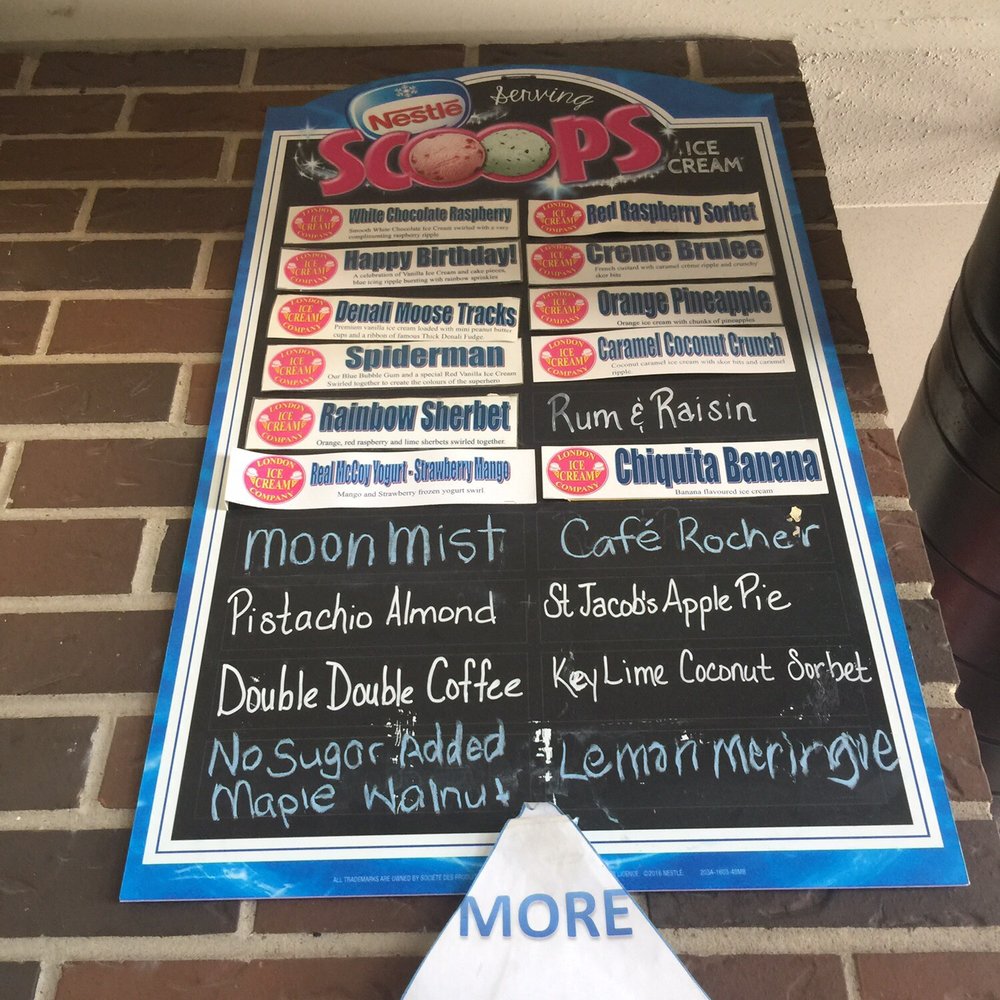 Nestlé
Serving
SCOOPS
ICE
CREAM
LONDON
ICE
CREAM
COMPANY
White Chocolate Raspberry
Smooth White Chocolate Ice Cream swirled with a very
complimenting raspberry ripple
LONDON
ICE
CREAM
COMPANY
Happy Birthday!
A celebration of Vanilla Ice Cream and cake pieces,
blue icing ripple bursting with rainbow sprinkles
LONDON
ICE
CREAM
COMPANY
Denali Moose Tracks
Premium vanilla ice cream loaded with mini peanut butter
cups and a ribbon of famous Thick Denali Fudge.
LONDON
ICE
CREAM
COMPANY
Spiderman
Our Blue Bubble Gum and a special Red Vanilla Ice Cream
Swirled together to create the colours of the superhero
LONDON
ICE
CREAM
COMPANY
Rainbow Sherbet
Orange, red raspberry and lime sherbets swirled together.
LONDON
ICE
CREAM
COMPANY
Real McCoy Yogurt - Strawberry Mango
Mango and Strawberry frozen yogurt swirl
moon mist
Pistachio Almond
Double Double Coffee
No Sugar Added
Maple Walnut
LONDON
ICE
CREAM
COMPANY
Red Raspberry Sorbet
LONDON
ICE
CREAM
COMPANY
Creme Brulee
French custard with caramel crème ripple and crunchy
skor bits
LONDON
ICE
CREAM
COMPANY
Orange Pineapple
Orange ice cream with chunks of pineapples
LONDON
ICE
CREAM
COMPANY
Caramel Coconut Crunch
Coconut caramel ice cream with skor bits and caramel
ripple.
Rum & Raisin
LONDON
ICE
CREAM
COMPANY
Chiquita Banana
Banana flavoured ice cream
Café Rocher
St Jacob's Apple Pie
Key Lime Coconut Sorbet
Lemon Meringue
ALL TRADEMARKS ARE OWNED BY SOCIÉTÉ DES LICENCE. ©2016 NESTLÉ. 203A-1603-48MB
MORE